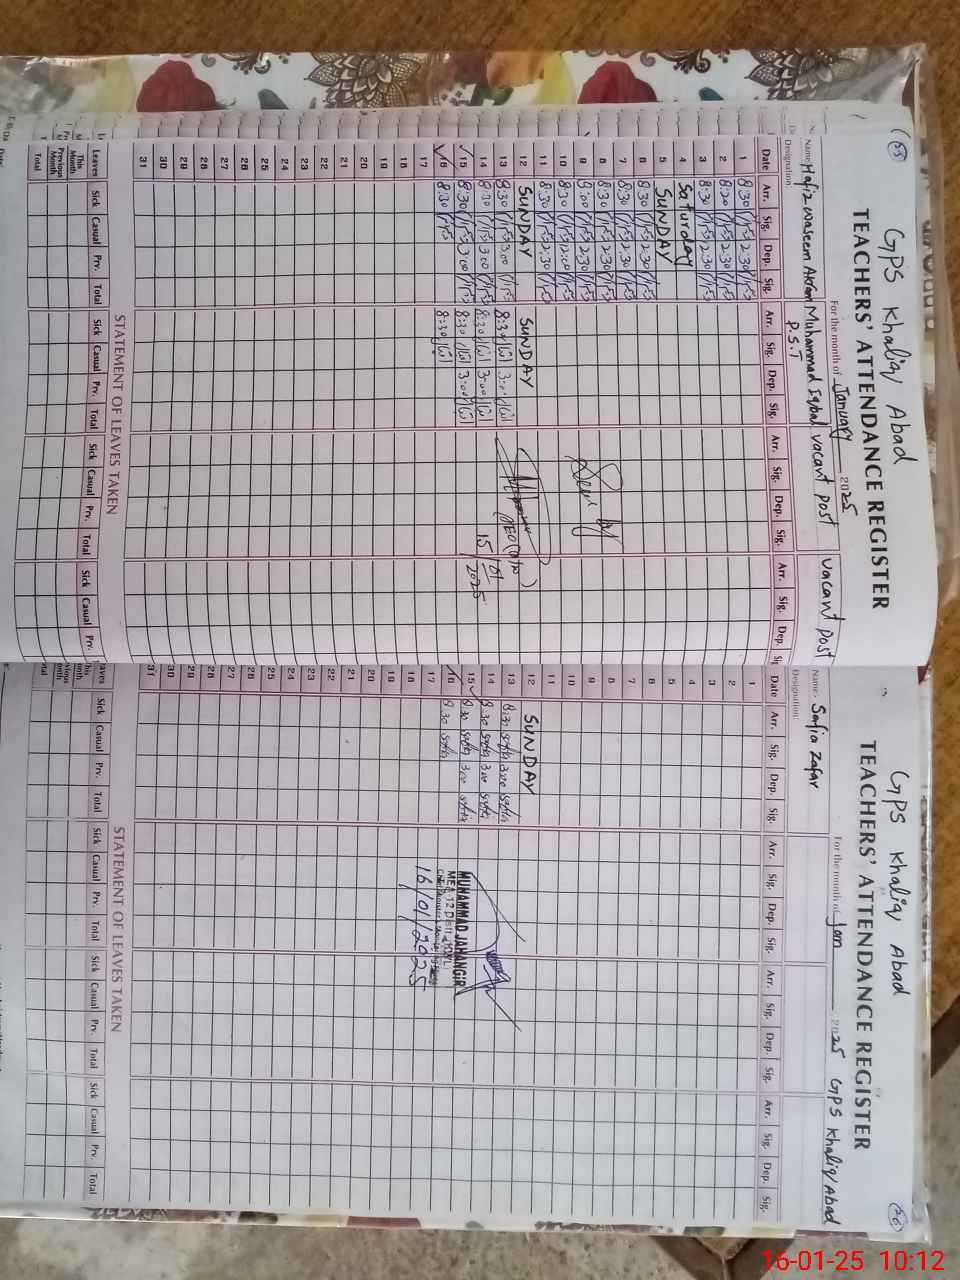 (25)
GPS Khaliq Abad
TEACHERS' ATTENDANCE REGISTER
For the month of January 2025
Name Hafiz Waseem Akram Muhammad Iqbal Vacant Post Vacant Post
Designation: P.S.T
Date Arr. Sig. Dep. Sig. Arr. Sig. Dep. Sig. Arr. Sig. Dep. Sig. Arr. Sig. Dep. Sig
1 8:30 2:30
2 8:30 2:30
3 8:30 2:30
4 Saturday
5 SUNDAY
6 8:30 2:30
7 8:30 2:30
8 8:30 2:30
9 9:00 2:30
10 8:30 12:00
11 8:30 2:30
12 SUNDAY SUNDAY
13 8:30 3:00 8:30 3:00
14 8:30 3:00 8:30 3:00
15 8:30 3:00 8:30 3:00
16 8:30 8:30
17
18
19
20
21
22
23
24
25
26
27
28
29
30
31
15/01/2025
STATEMENT OF LEAVES TAKEN
Leaves Sick Casual Prv. Total Sick Casual Prv. Total Sick Casual Prv. Total Sick Casual Prv.
This Month
Previous Month
Total
(26)
GPS Khaliq Abad
TEACHERS' ATTENDANCE REGISTER
For the month of Jan 2025 GPS Khaliq Abad
Name: Safia Zafar
Designation:
Date Arr. Sig. Dep. Sig. Arr. Sig. Dep. Sig. Arr. Sig. Dep. Sig. Arr. Sig. Dep. Sig.
1
2
3
4
5
6
7
8
9
10
11
12 SUNDAY
13 8:30 3:00
14 8:30 3:00
15 8:30 3:00
16 8:30
17
18
19
20
21
22
23
24
25
26
27
28
29
30
31
MUHAMMAD JAHANGIR
16/01/2025
STATEMENT OF LEAVES TAKEN
Sick Casual Prv. Total Sick Casual Prv. Total Sick Casual Prv. Total Sick Casual Prv. Total
16-01-25 10:12